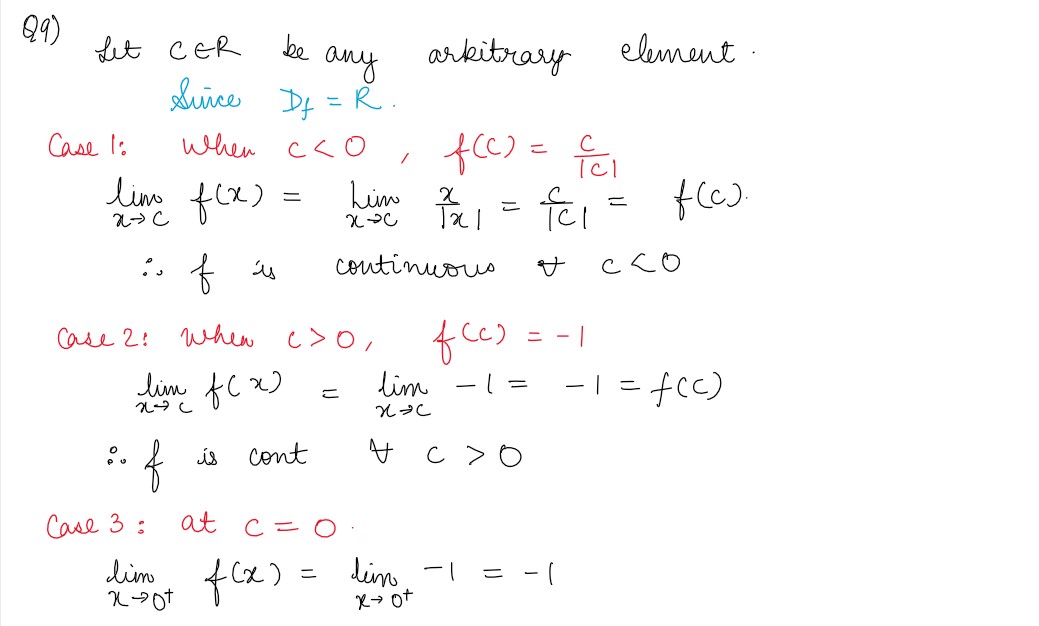 Q9)
Let C ∈ R be any arbitrary element.
Since D_f = R.
Case 1: When c < 0, f(c) = c/|c|
lim_{x→c} f(x) = Lim_{x→c} x/|x| = c/|c| = f(c).
∴ f is continuous ∀ c < 0
Case 2: When c > 0, f(c) = -1
lim_{x→c} f(x) = lim_{x→c} -1 = -1 = f(c)
∴ f is cont ∀ c > 0
Case 3: at c = 0.
lim_{x→0⁺} f(x) = lim_{x→0⁺} -1 = -1